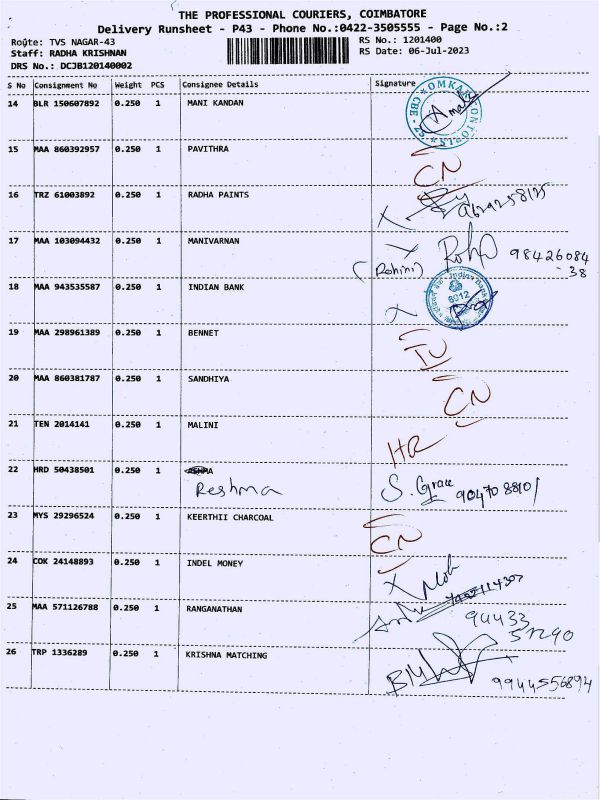 THE PROFESSIONAL COURIERS, COIMBATORE
Delivery Runsheet - P43 - Phone No.:0422-3505555 - Page No.:2
Route: TVS NAGAR-43 RS No.: 1201400
Staff: RADHA KRISHNAN RS Date: 06-Jul-2023
DRS No.: DCJB120140002
S No Consignment No Weight PCS Consignee Details Signature
14 BLR 150607892 0.250 1 MANI KANDAN
15 MAA 860392957 0.250 1 PAVITHRA CN
16 TRZ 61003892 0.250 1 RADHA PAINTS
17 MAA 103094432 0.250 1 MANIVARNAN 98426084
(Rohini) -38
18 MAA 943535587 0.250 1 INDIAN BANK
19 MAA 298961389 0.250 1 BENNET
20 MAA 860381787 0.250 1 SANDHIYA CN
21 TEN 2014141 0.250 1 MALINI HR
22 HRD 50438501 0.250 1
Reshma S. Grace 9047088101
23 MYS 29296524 0.250 1 KEERTHII CHARCOAL CN
24 COK 24148893 0.250 1 INDEL MONEY
25 MAA 571126788 0.250 1 RANGANATHAN 94433
57290
26 TRP 1336289 0.250 1 KRISHNA MATCHING
9944556894